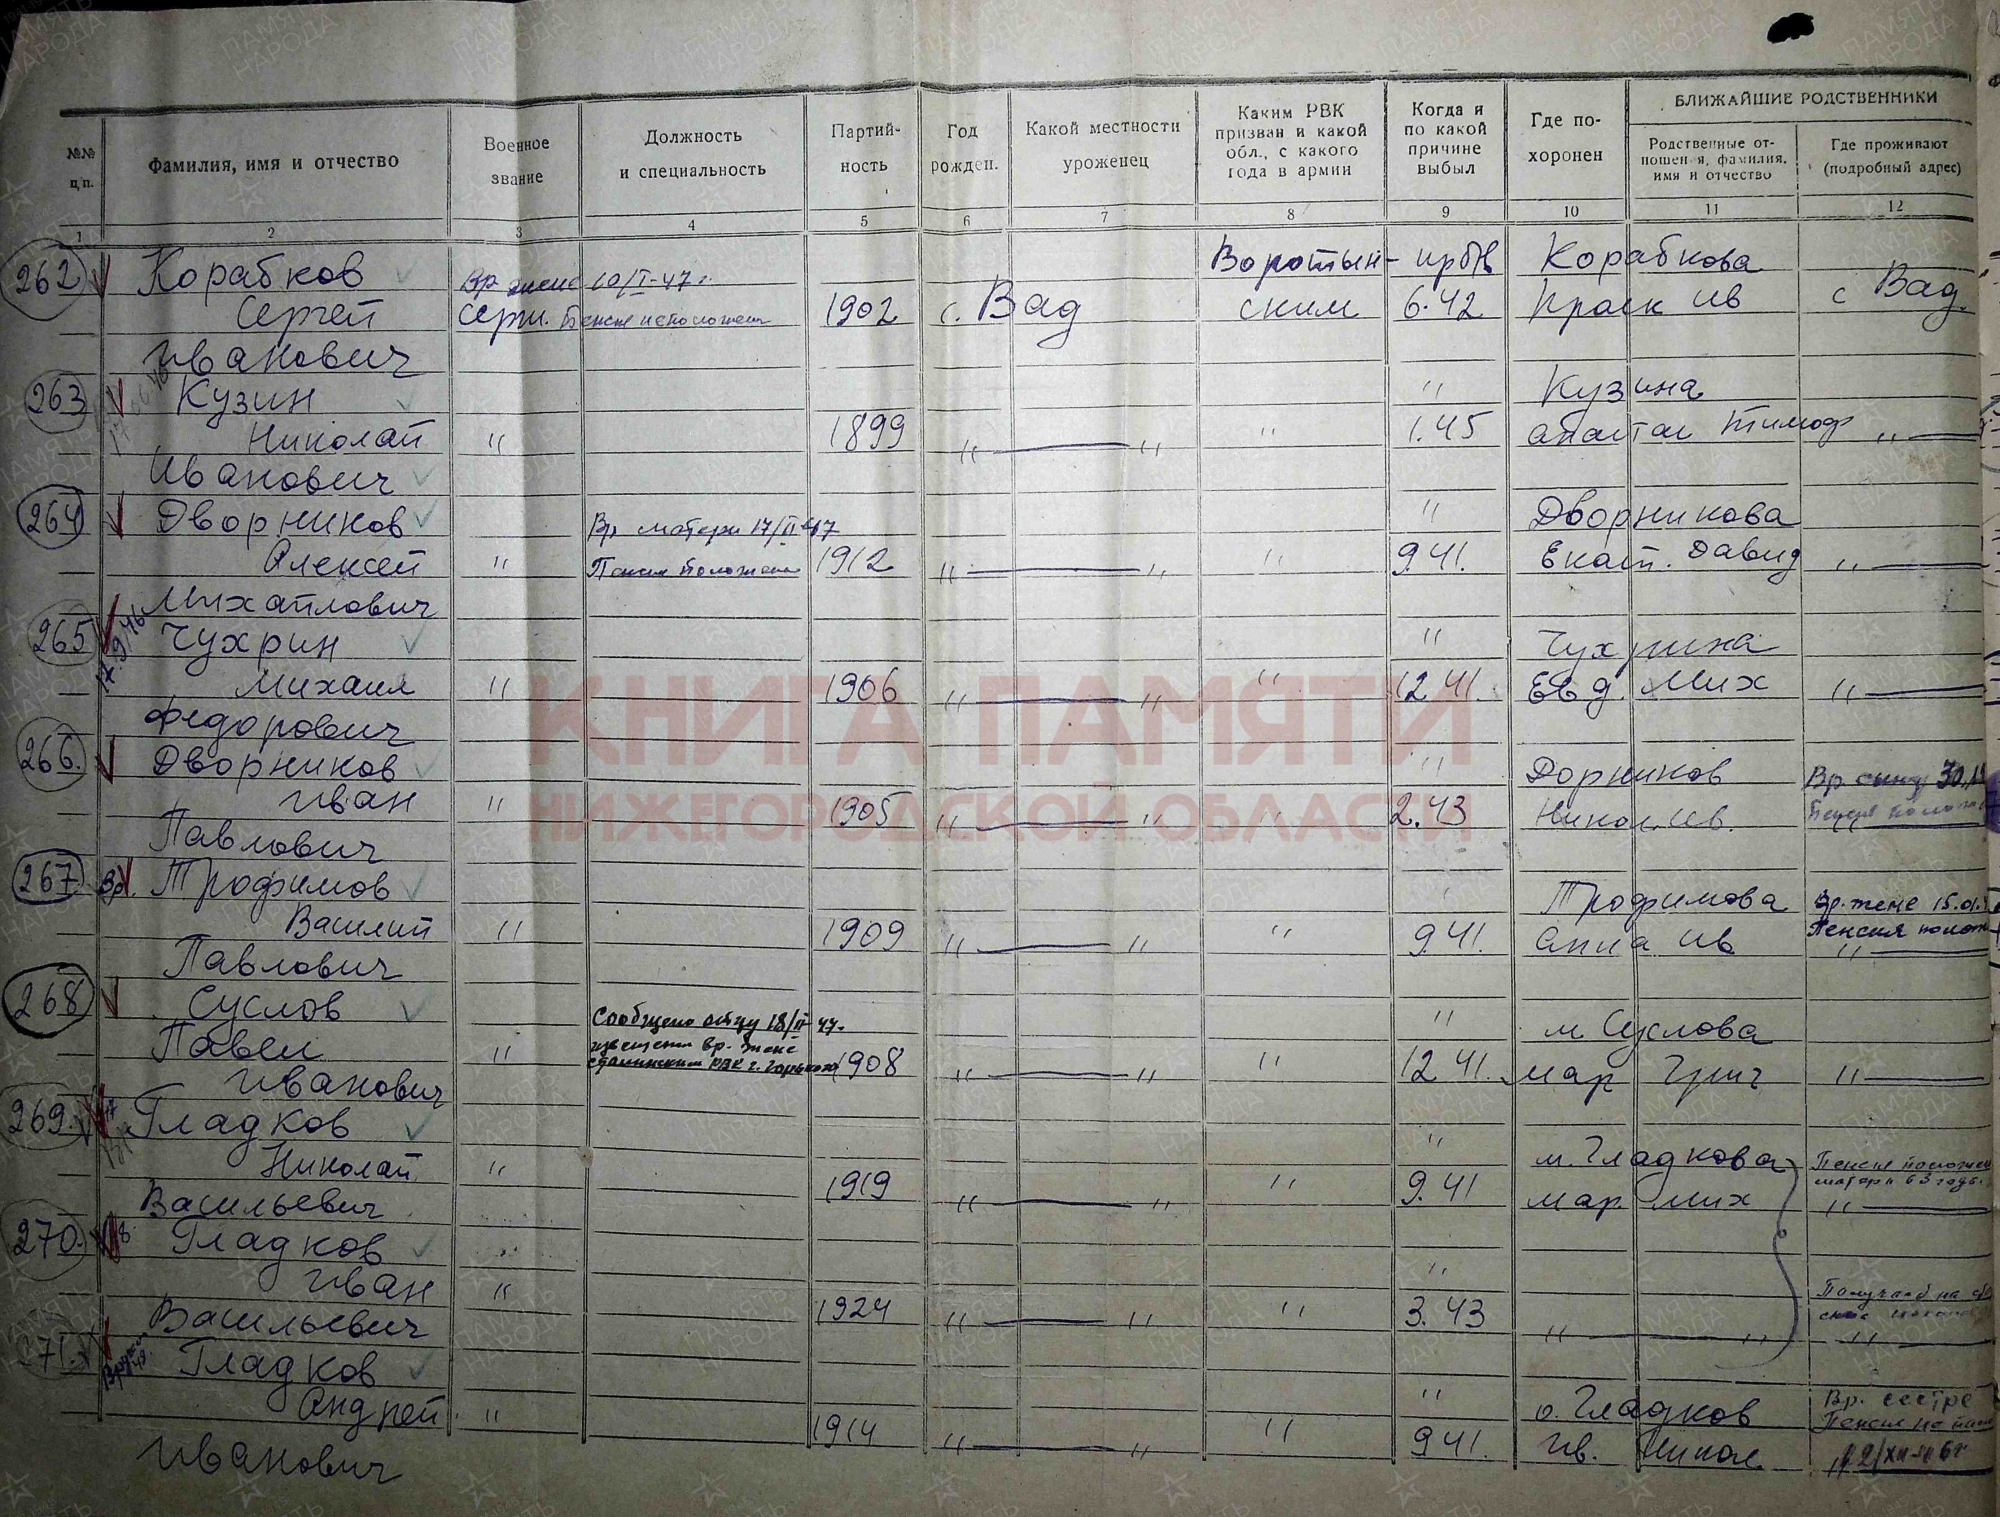 БЛИЖАЙШИЕ РОДСТВЕННИКИ
№№ п/п. Фамилия, имя и отчество Военное звание Должность и специальность Партийность Год рожден. Какой местности уроженец Каким РВК призван и какой обл., с какого года в армии Когда и по какой причине выбыл Где похоронен Родственные отношения, фамилия, имя и отчество Где проживают (подробный адрес)
1 2 3 4 5 6 7 8 9 10 11 12
262 Корабков Вр жене 10/I-47г. Воротын- пр б/в Корабкова
Сергей серж. 1902 с. Вад ским 6.42 Праск Ив с Вад.
Иванович
263 Кузин " Кузина
Николай " 1899 " — " " 1.45 Анастас Тимоф " —
Иванович
264 Дворников Вр матери 17/II-47 " Дворникова
Алексей " Пенсия положена 1912 " — " " 9.41. Екат. Давид " —
Михайлович
265 17.9/46 Чухрин " Чухрина
Михаил " 1906 " — " " 12 41. Евд. Мих " —
Федорович
266. Дворников " Дорников Вр сыну 30.
Иван " 1905 " — " " 2.43 Никол. Ив.
Павлович
267 Вр. Трофимов " Трофимова Вр. жене 15.01.
Василий " 1909 " — " " 9.41. Анна Ив Пенсия полож
Павлович " —
268 Суслов Сообщено отцу 18/II 47. " м Суслова
Павел " извещени вр. жене Сталинским РВК г. Горького 1908 " — " " 12 41. Мар Григ " —
Иванович
269. Гладков " м. Гладкова Пенсия положен
Николай " 1919 " — " " 9.41 Мар. Мих матери 63 года.
Васильевич " —
270. Гладков "
Иван " 1924 " — " " 3.43 " — " Получаеб на
Васильевич — " —
271. Гладков " о. Гладков Вр. сестре
Андрей " 1914 " — " " 9 41. Ив. Никол Пенсия не
Иванович
КНИГА ПАМЯТИ
НИЖЕГОРОДСКОЙ ОБЛАСТИ
ПАМЯТЬ НАРОДА